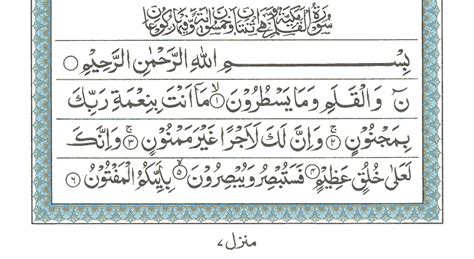 سُوْرَةُ الْقَلَمِ مَكِّيَّةٌ وَّهِيَ ثِنْتَانِ وَخَمْسُوْنَ اٰيَةً وَّفِيْهَا رُكُوْعَانِ
بِسْمِ اللّٰهِ الرَّحْمٰنِ الرَّحِيْمِ ○
نٓ وَالْقَلَمِ وَمَا يَسْطُرُوْنَ ۙ۱ مَاۤ اَنْتَ بِنِعْمَةِ رَبِّكَ
بِمَجْنُوْنٍ ۚ۲ وَاِنَّ لَكَ لَاَجْرًا غَيْرَ مَمْنُوْنٍ ۚ۳ وَاِنَّكَ
لَعَلٰى خُلُقٍ عَظِيْمٍ ۴ فَسَتُبْصِرُ وَيُبْصِرُوْنَ ۙ۵ بِاَيِّكُمُ الْمَفْتُوْنُ ۶
منزل ۷